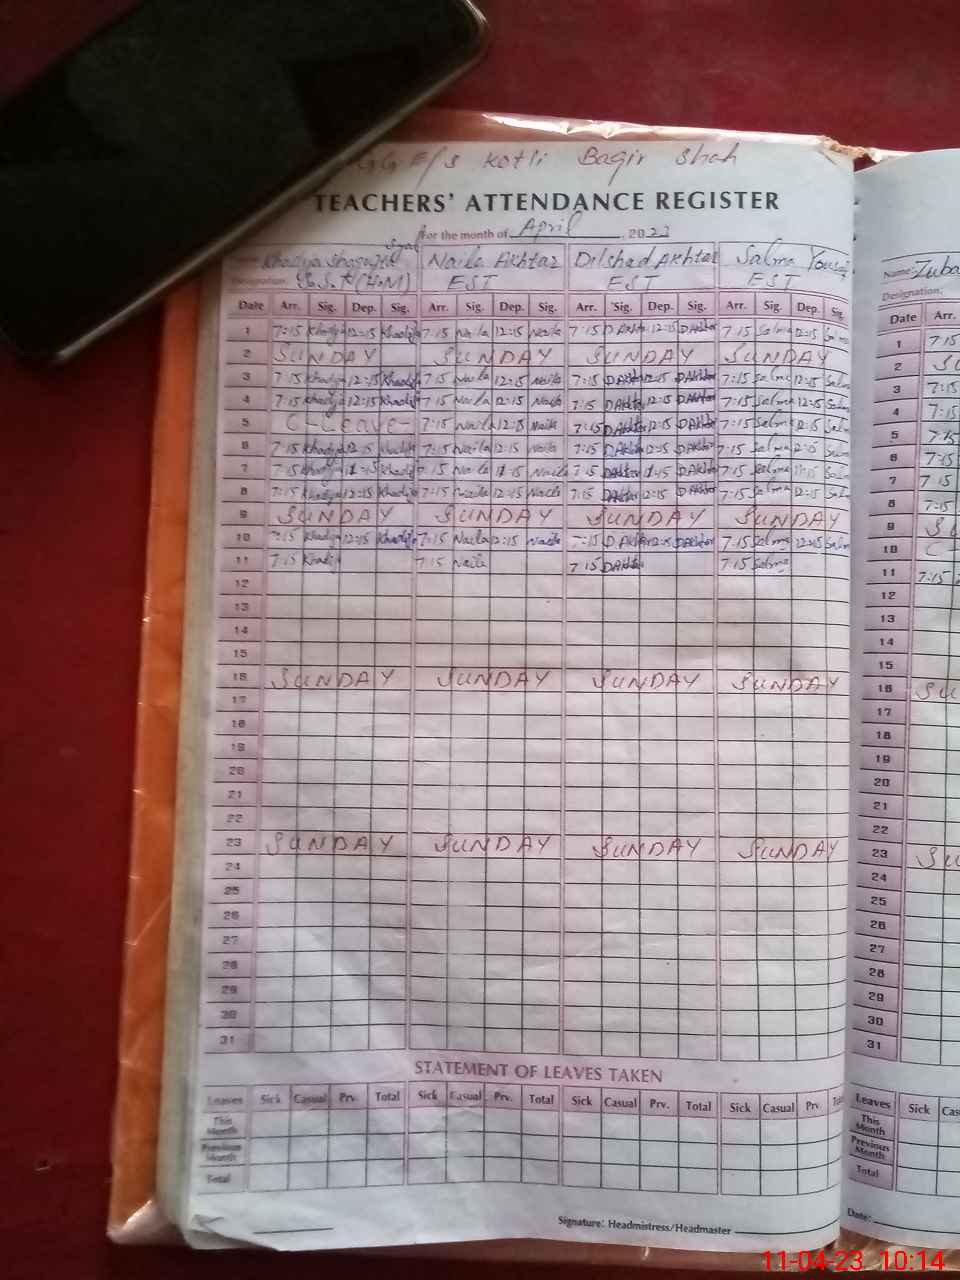 GG E/S Kotli Baqir Shah
TEACHERS' ATTENDANCE REGISTER
For the month of April, 2023
Syed
Khadija Naila Akhtar Dilshad Akhtar Salma Yousaf Name: Zuba
S.S.T (H.M) EST EST EST Designation:
Date Arr. Sig. Dep. Sig. Arr. Sig. Dep. Sig. Arr. Sig. Dep. Sig. Arr. Sig. Dep. Sig. Date Arr.
1 7:15 Khadija 12:15 Khadija 7:15 Naila 12:15 Naila 7:15 DAkhtar 12:15 DAkhtar 7:15 Salma 12:15 Salma 1 7:15
2 SUNDAY SUNDAY SUNDAY SUNDAY 2 SU
3 7:15 Khadija 12:15 Khadija 7:15 Naila 12:15 Naila 7:15 DAkhtar 12:15 DAkhtar 7:15 Salma 12:15 Salma 3 7:15
4 7:15 Khadija 12:15 Khadija 7:15 Naila 12:15 Naila 7:15 DAkhtar 12:15 DAkhtar 7:15 Salma 12:15 Salma 4 7:15
5 C-Leave- 7:15 Naila 12:15 Naila 7:15 DAkhtar 12:15 DAkhtar 7:15 Salma 12:15 Salma 5 7:15
6 7:15 Khadija 12:15 Khadija 7:15 Naila 12:15 Naila 7:15 DAkhtar 12:15 DAkhtar 7:15 Salma 12:15 Salma 6 7:15
7 7:15 Khadija 11:45 Khadija 7:15 Naila 11:15 Naila 7:15 DAkhtar 11:45 DAkhtar 7:15 Salma 11:15 Salma 7 7:15
8 7:15 Khadija 12:15 Khadija 7:15 Naila 12:15 Naila 7:15 DAkhtar 12:15 DAkhtar 7:15 Salma 12:15 Salma 8 7:15
9 SUNDAY SUNDAY SUNDAY SUNDAY 9 SU
10 7:15 Khadija 12:15 Khadija 7:15 Naila 12:15 Naila 7:15 DAkhtar 12:15 DAkhtar 7:15 Salma 12:15 Salma 10 C
11 7:15 Khadija 7:15 Naila 7:15 DAkhtar 7:15 Salma 11 7:15
12 12
13 13
14 14
15 15
16 SUNDAY SUNDAY SUNDAY SUNDAY 16 SU
17 17
18 18
19 19
20 20
21 21
22 22
23 SUNDAY SUNDAY SUNDAY SUNDAY 23 SU
24 24
25 25
26 26
27 27
28 28
29 29
30 30
31 31
STATEMENT OF LEAVES TAKEN
Leaves Sick Casual Prv. Total Sick Casual Prv. Total Sick Casual Prv. Total Sick Casual Prv. Leaves Sick Cas
This Month This Month
Previous Month Previous Month
Total Total
Signature: Headmistress/Headmaster Date:
11-04-23 10:14